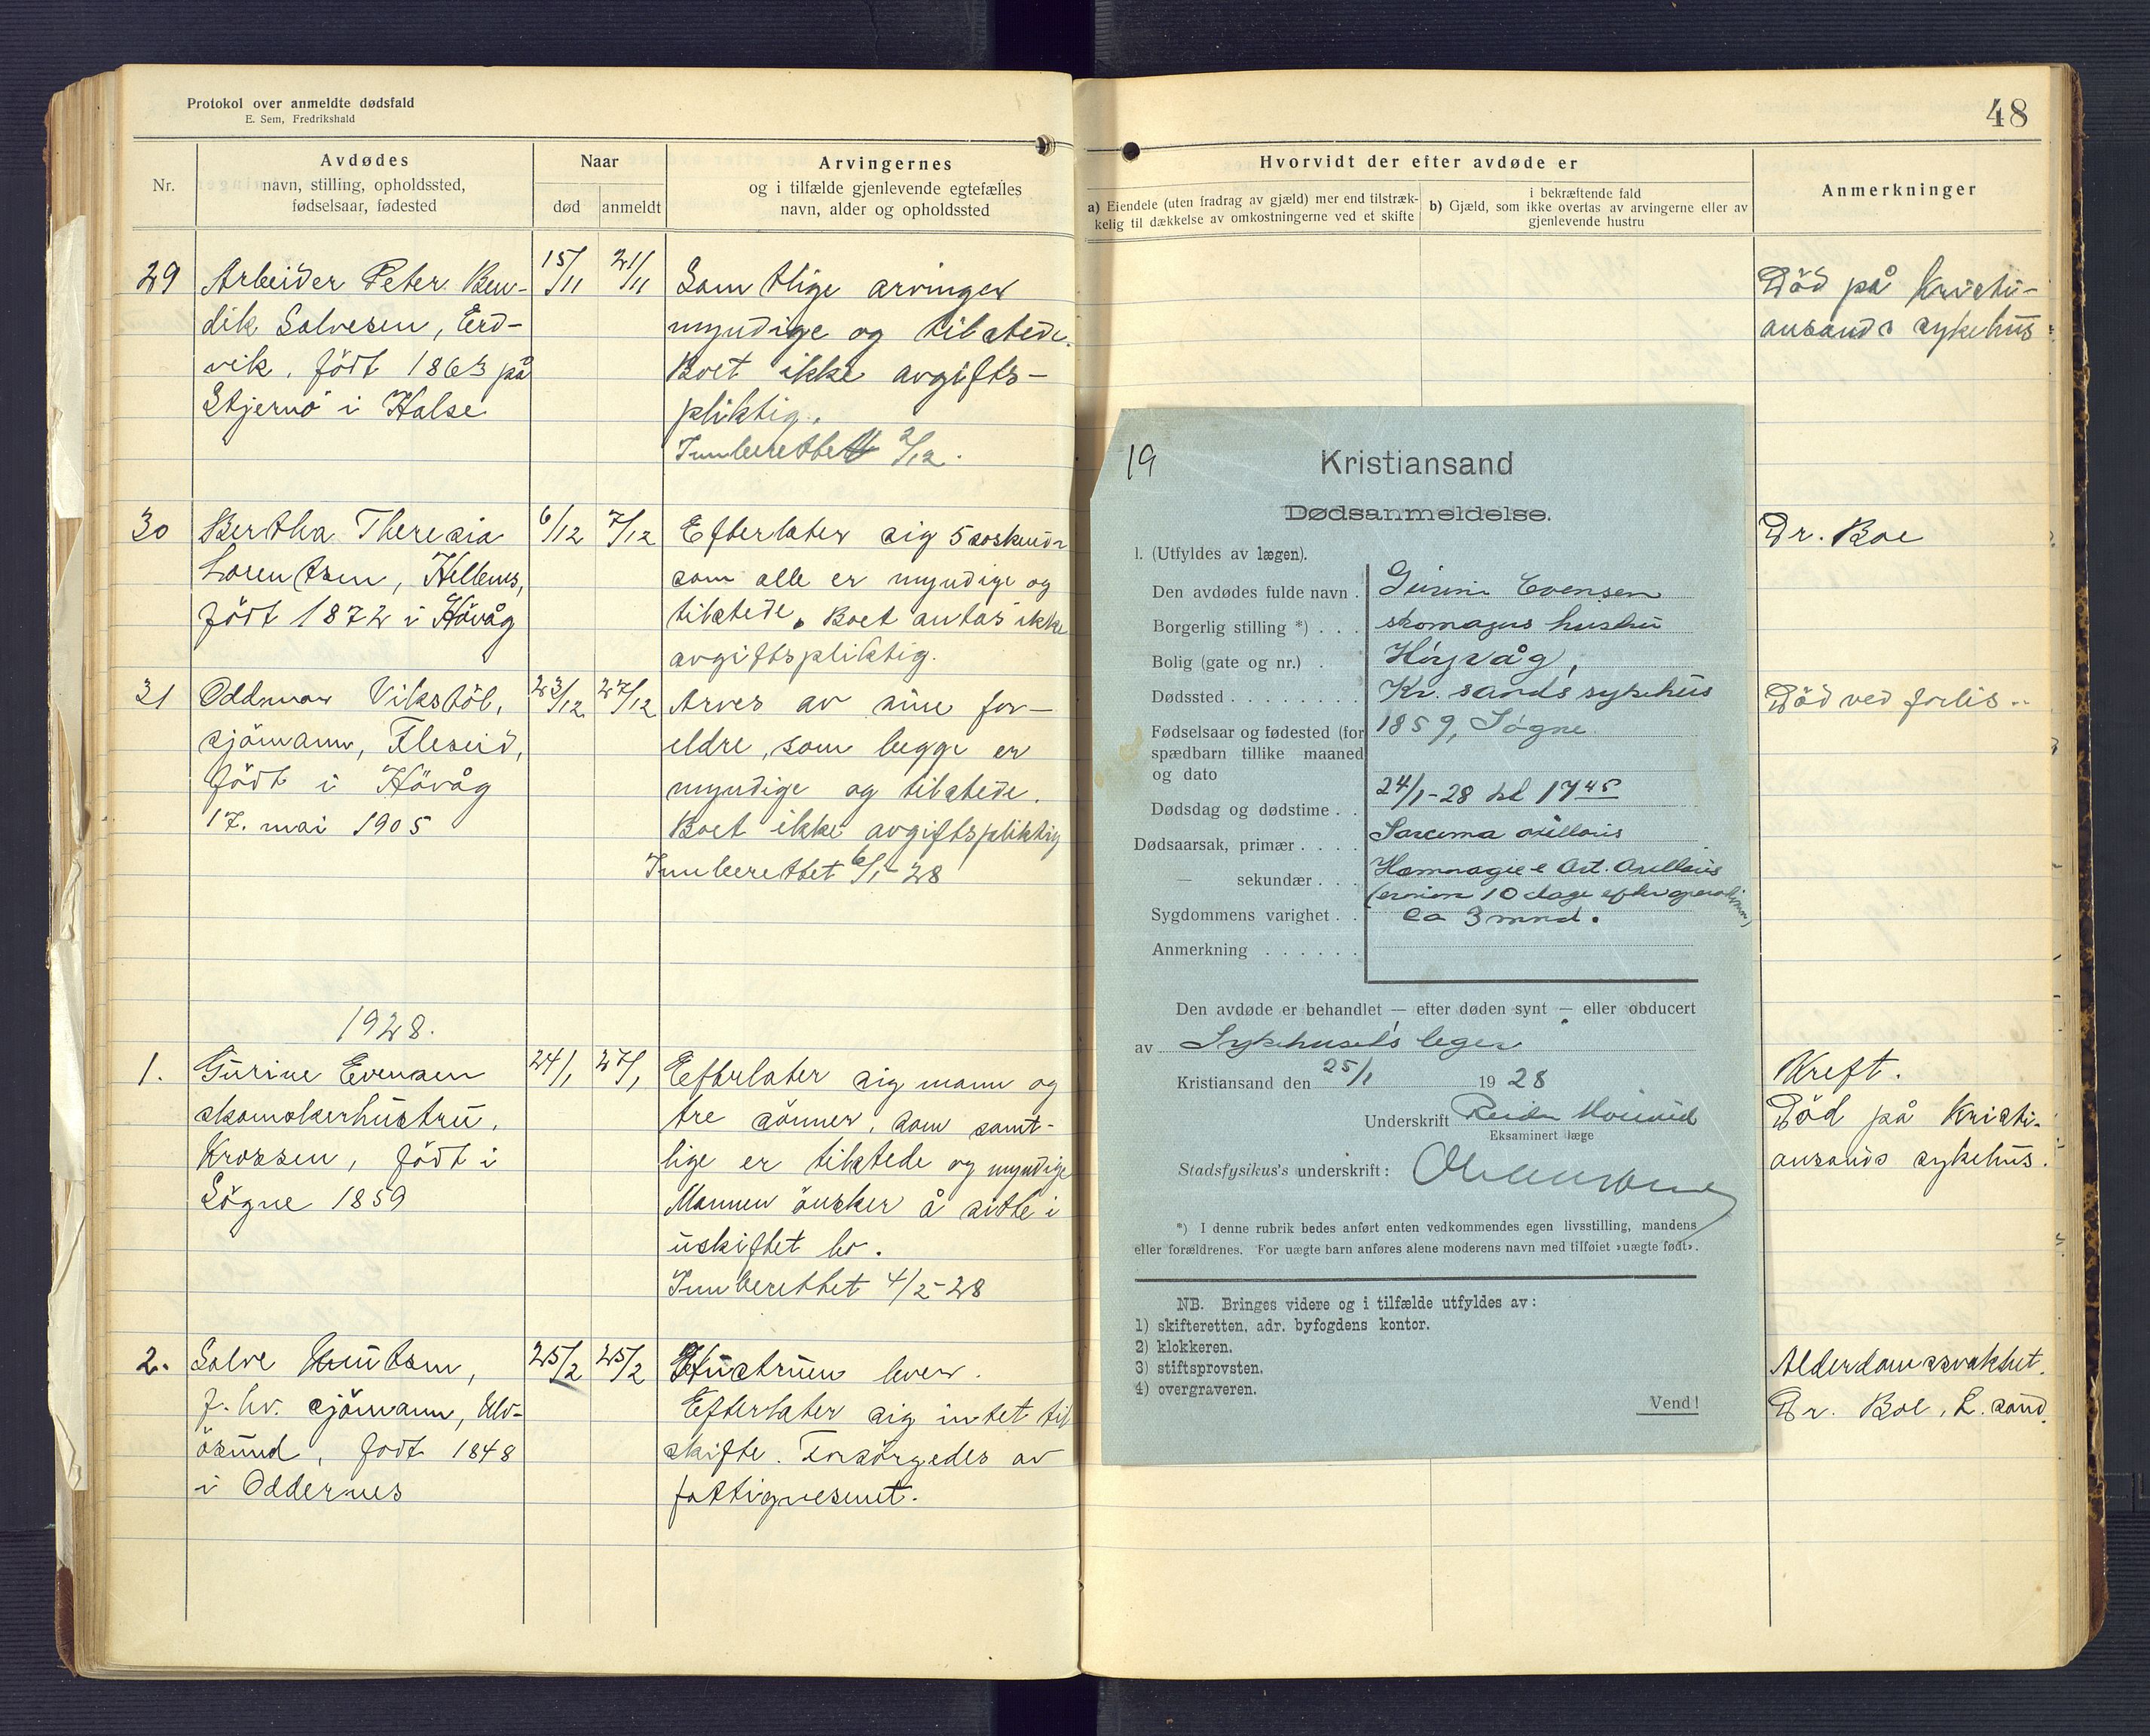 Protokol over anmeldte dødsfald
E. Sem, Fredrikshald
Nr.
Avdødes
navn, stilling, opholdssted,
fødselsaar, fødested
Naar
død
anmeldt
Arvingernes
og i tilfælde gjenlevende egtefælles
navn, alder og opholdssted
29
Arbeider Peter Ben-
dik Salvesen, Erd-
vik, født 1863 på
Skjernö i Halse
15/11
21/11
Samtlige arvinger
myndige og tilstede.
Boet ikke avgifts-
pliktig.
Innberettet 2/12.
30
Bertha Theresia
Lorentsen, Hellenes,
født 1872 i Hövåg
6/12
7/12
Efterlater sig 5 söskende
som alle er myndige og
tilstede. Boet antas ikke
avgiftspliktig.
31
Oddmar Vikstöl,
sjömann,
født i Hövåg
17. mai 1905
23/12
27/12
Arves av sine for-
eldre, som begge er
myndige og tilstede.
Boet ikke avgiftspliktig
Innberettet 6/1-28
1928.
1.
Gurine Evensen
skomakerhustru,
Krossen, født i
Sögne 1859
24/1
27/1
Efterlater sig mann og
tre sönner, som samt-
lige er tilstede og myndige
Mannen önsker å sitte i
uskiftet bo.
Innberettet 4/2-28
2.
Salve Knutsen,
f. hv. sjömann, Ulv-
ösund, født 1848
i Oddernes
25/2
25/2
Hustruen lever.
Efterlater sig intet til
skifte. Forsörgedes av
fattigvesenet.
48
Hvorvidt der efter avdøde er
a) Eiendele (uten fradrag av gjæld) mer end tilstræk-
kelig til dækkelse av omkostningerne ved et skifte
i bekræftende fald
b) Gjæld, som ikke overtas av arvingerne eller av
gjenlevende hustru
Anmerkninger
Död på Kristi-
ansands sykehus
Dr. Boe
Död ved forlis.
Kreft.
Död på Kristi-
ansands sykehus.
Alderdomssvakhet.
Dr. Boe, L.sand.
19
Kristiansand
Dødsanmeldelse.
1. (Utfyldes av lægen).
Den avdødes fulde navn . Gurine Evensen
Borgerlig stilling *) . . . skomagers hustru
Bolig (gate og nr.) . Höyvåg,
Dødssted . . . . . . . . Kr. sands sykehus
Fødselsaar og fødested (for 1859, Søgne.
spædbarn tillike maaned
og dato
Dødsdag og dødstime . . 24/1-28 kl 17 45
Dødsaarsak, primær . . . . Sarcoma axillaris
— sekundær . . . Hæmoragie e Art. Axillaris
10 dage efter operationen)
Sygdommens varighet . . ca 3 mnd.
Anmerkning . . . . . .
Den avdøde er behandlet — efter døden synt — eller obducert
av Sykehusets leger
Kristiansand den 25/1 1928
Underskrift Reidar
Eksaminert læge
Stadsfysikus's underskrift:
*) I denne rubrik bedes anført enten vedkommendes egen livsstilling, mandens
eller forældrenes. For uægte barn anføres alene moderens navn med tilføiet »uægte født«.
NB. Bringes videre og i tilfælde utfyldes av:
1) skifteretten, adr. byfogdens kontor.
2) klokkeren.
3) stiftsprovsten.
4) overgraveren.
Vend!